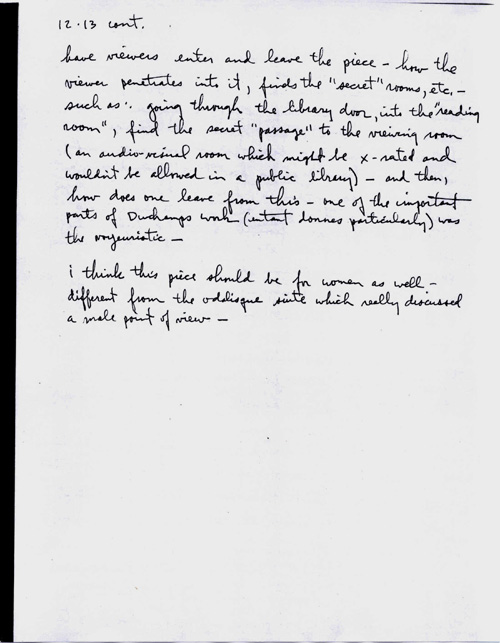 12·13 cont.
have viewers enter and leave the piece – how the
viewer penetrates into it, finds the "secret" rooms, etc. –
such as: going through the library door, into the "reading
room", find the secret "passage" to the viewing room
(an audio-visual room which might be x-rated and
wouldn't be allowed in a public library) – and then,
how does one leave from this – one of the important
parts of Duchamps work (etant donnes particularly) was
the voyeuristic –
i think this piece should be for women as well –
different from the oddisque suite which really discussed
a male point of view –